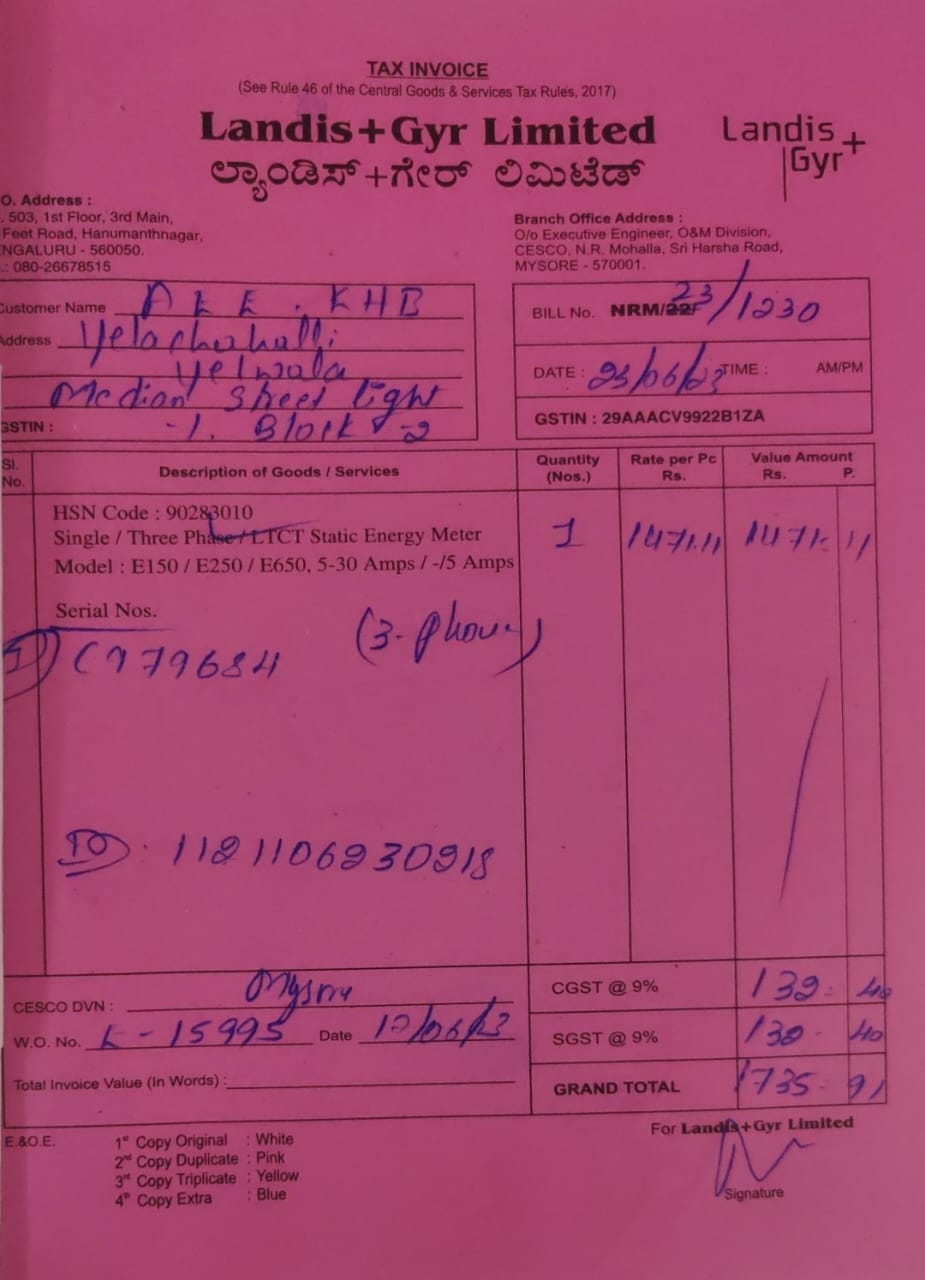 TAX INVOICE
(See Rule 46 of the Central Goods & Services Tax Rules, 2017)
Landis+Gyr Limited
ಲ್ಯಾಂಡಿಸ್+ಗೇರ್ ಲಿಮಿಟೆಡ್
Landis Gyr+
O. Address :
. 503, 1st Floor, 3rd Main,
Feet Road, Hanumanthnagar,
NGALURU - 560050.
.: 080-26678515
Branch Office Address :
O/o Executive Engineer, O&M Division,
CESCO, N.R. Mohalla, Sri Harsha Road,
MYSORE - 570001.
Customer Name AEE. KHB
Address
Yelwala
Median Street light
GSTIN : -1. Block -2
BILL No. NRM/22/ 23/1230
DATE : 23/06/23 TIME : AM/PM
GSTIN : 29AAACV9922B1ZA
Sl. No. Description of Goods / Services Quantity (Nos.) Rate per Pc Rs. Value Amount Rs. P.
HSN Code : 90283010
Single / Three Phase / LTCT Static Energy Meter 1 1471.11 1471. 11
Model : E150 / E250 / E650, 5-30 Amps / -/5 Amps
Serial Nos.
(3-phase)
1) C979684
1121106230218
CESCO DVN : Mysore
W.O. No. K-15995 Date 12/06/23
Total Invoice Value (In Words) :
CGST @ 9% 132. 40
SGST @ 9% 132. 40
GRAND TOTAL 1735. 91
E.&O.E.
1st Copy Original : White
2nd Copy Duplicate : Pink
3rd Copy Triplicate : Yellow
4th Copy Extra : Blue
For Landis+Gyr Limited
Signature